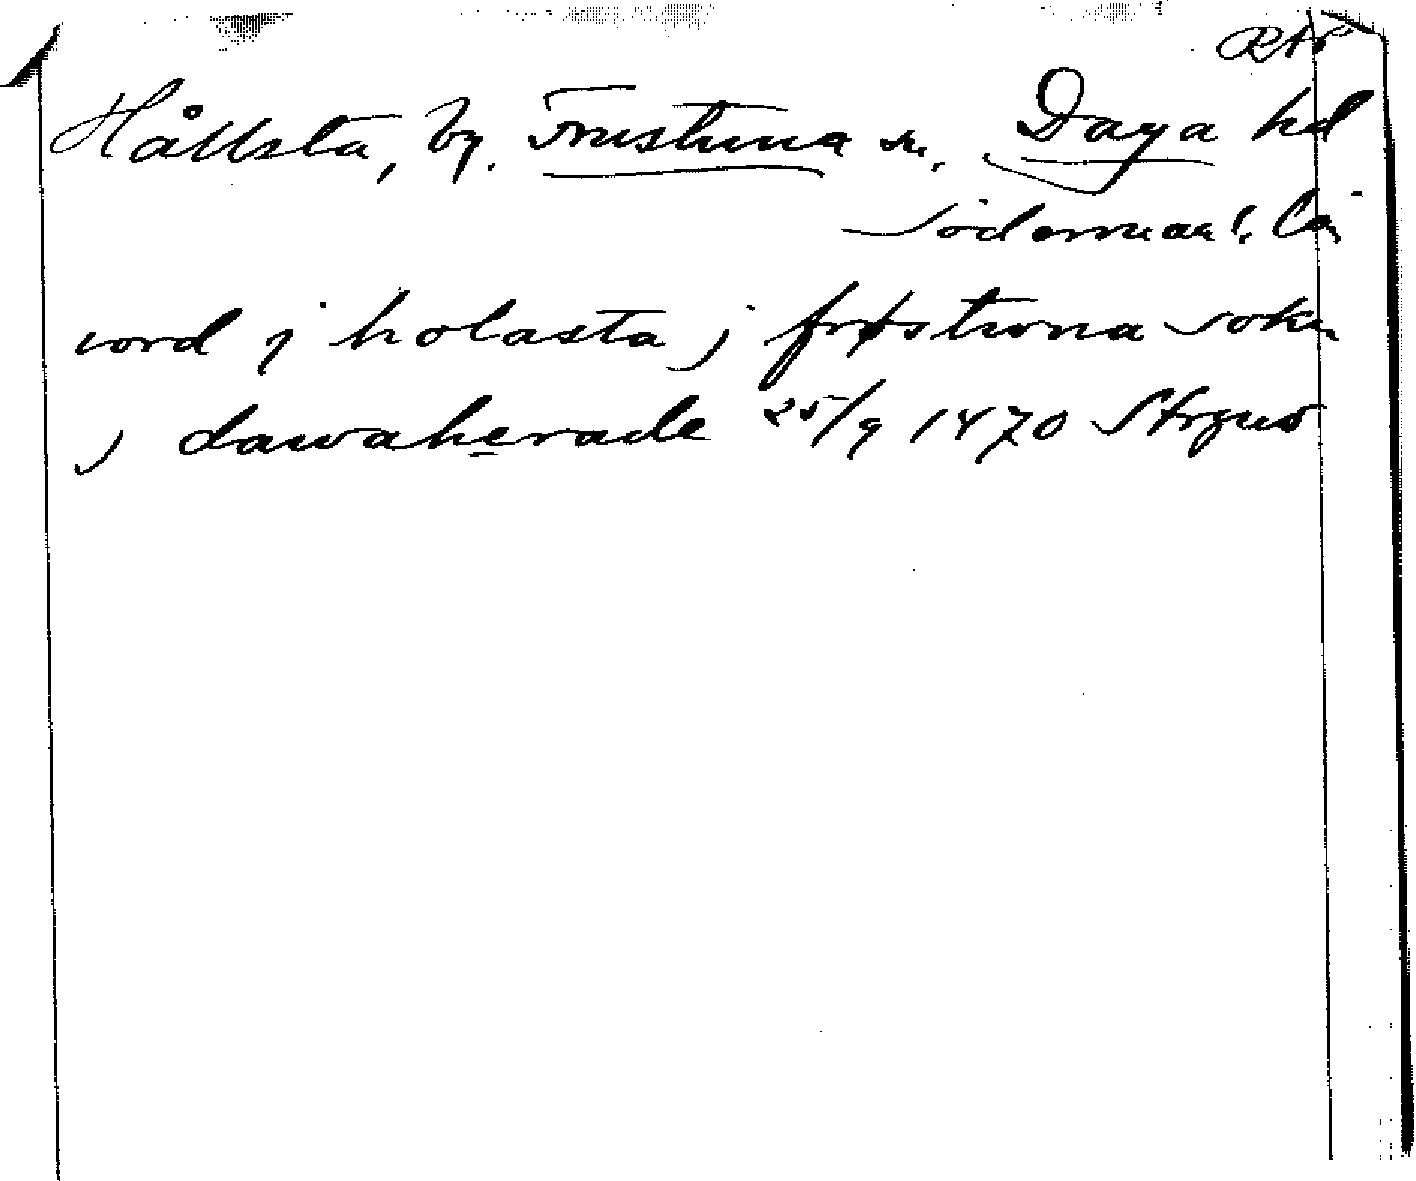 RAP
Hållsta, by. Frustuna sn. Daga hd
Södermanl. län
iord j holasta j frøstwna sokn
j dawaherade 25/9 1470 Strgnäs